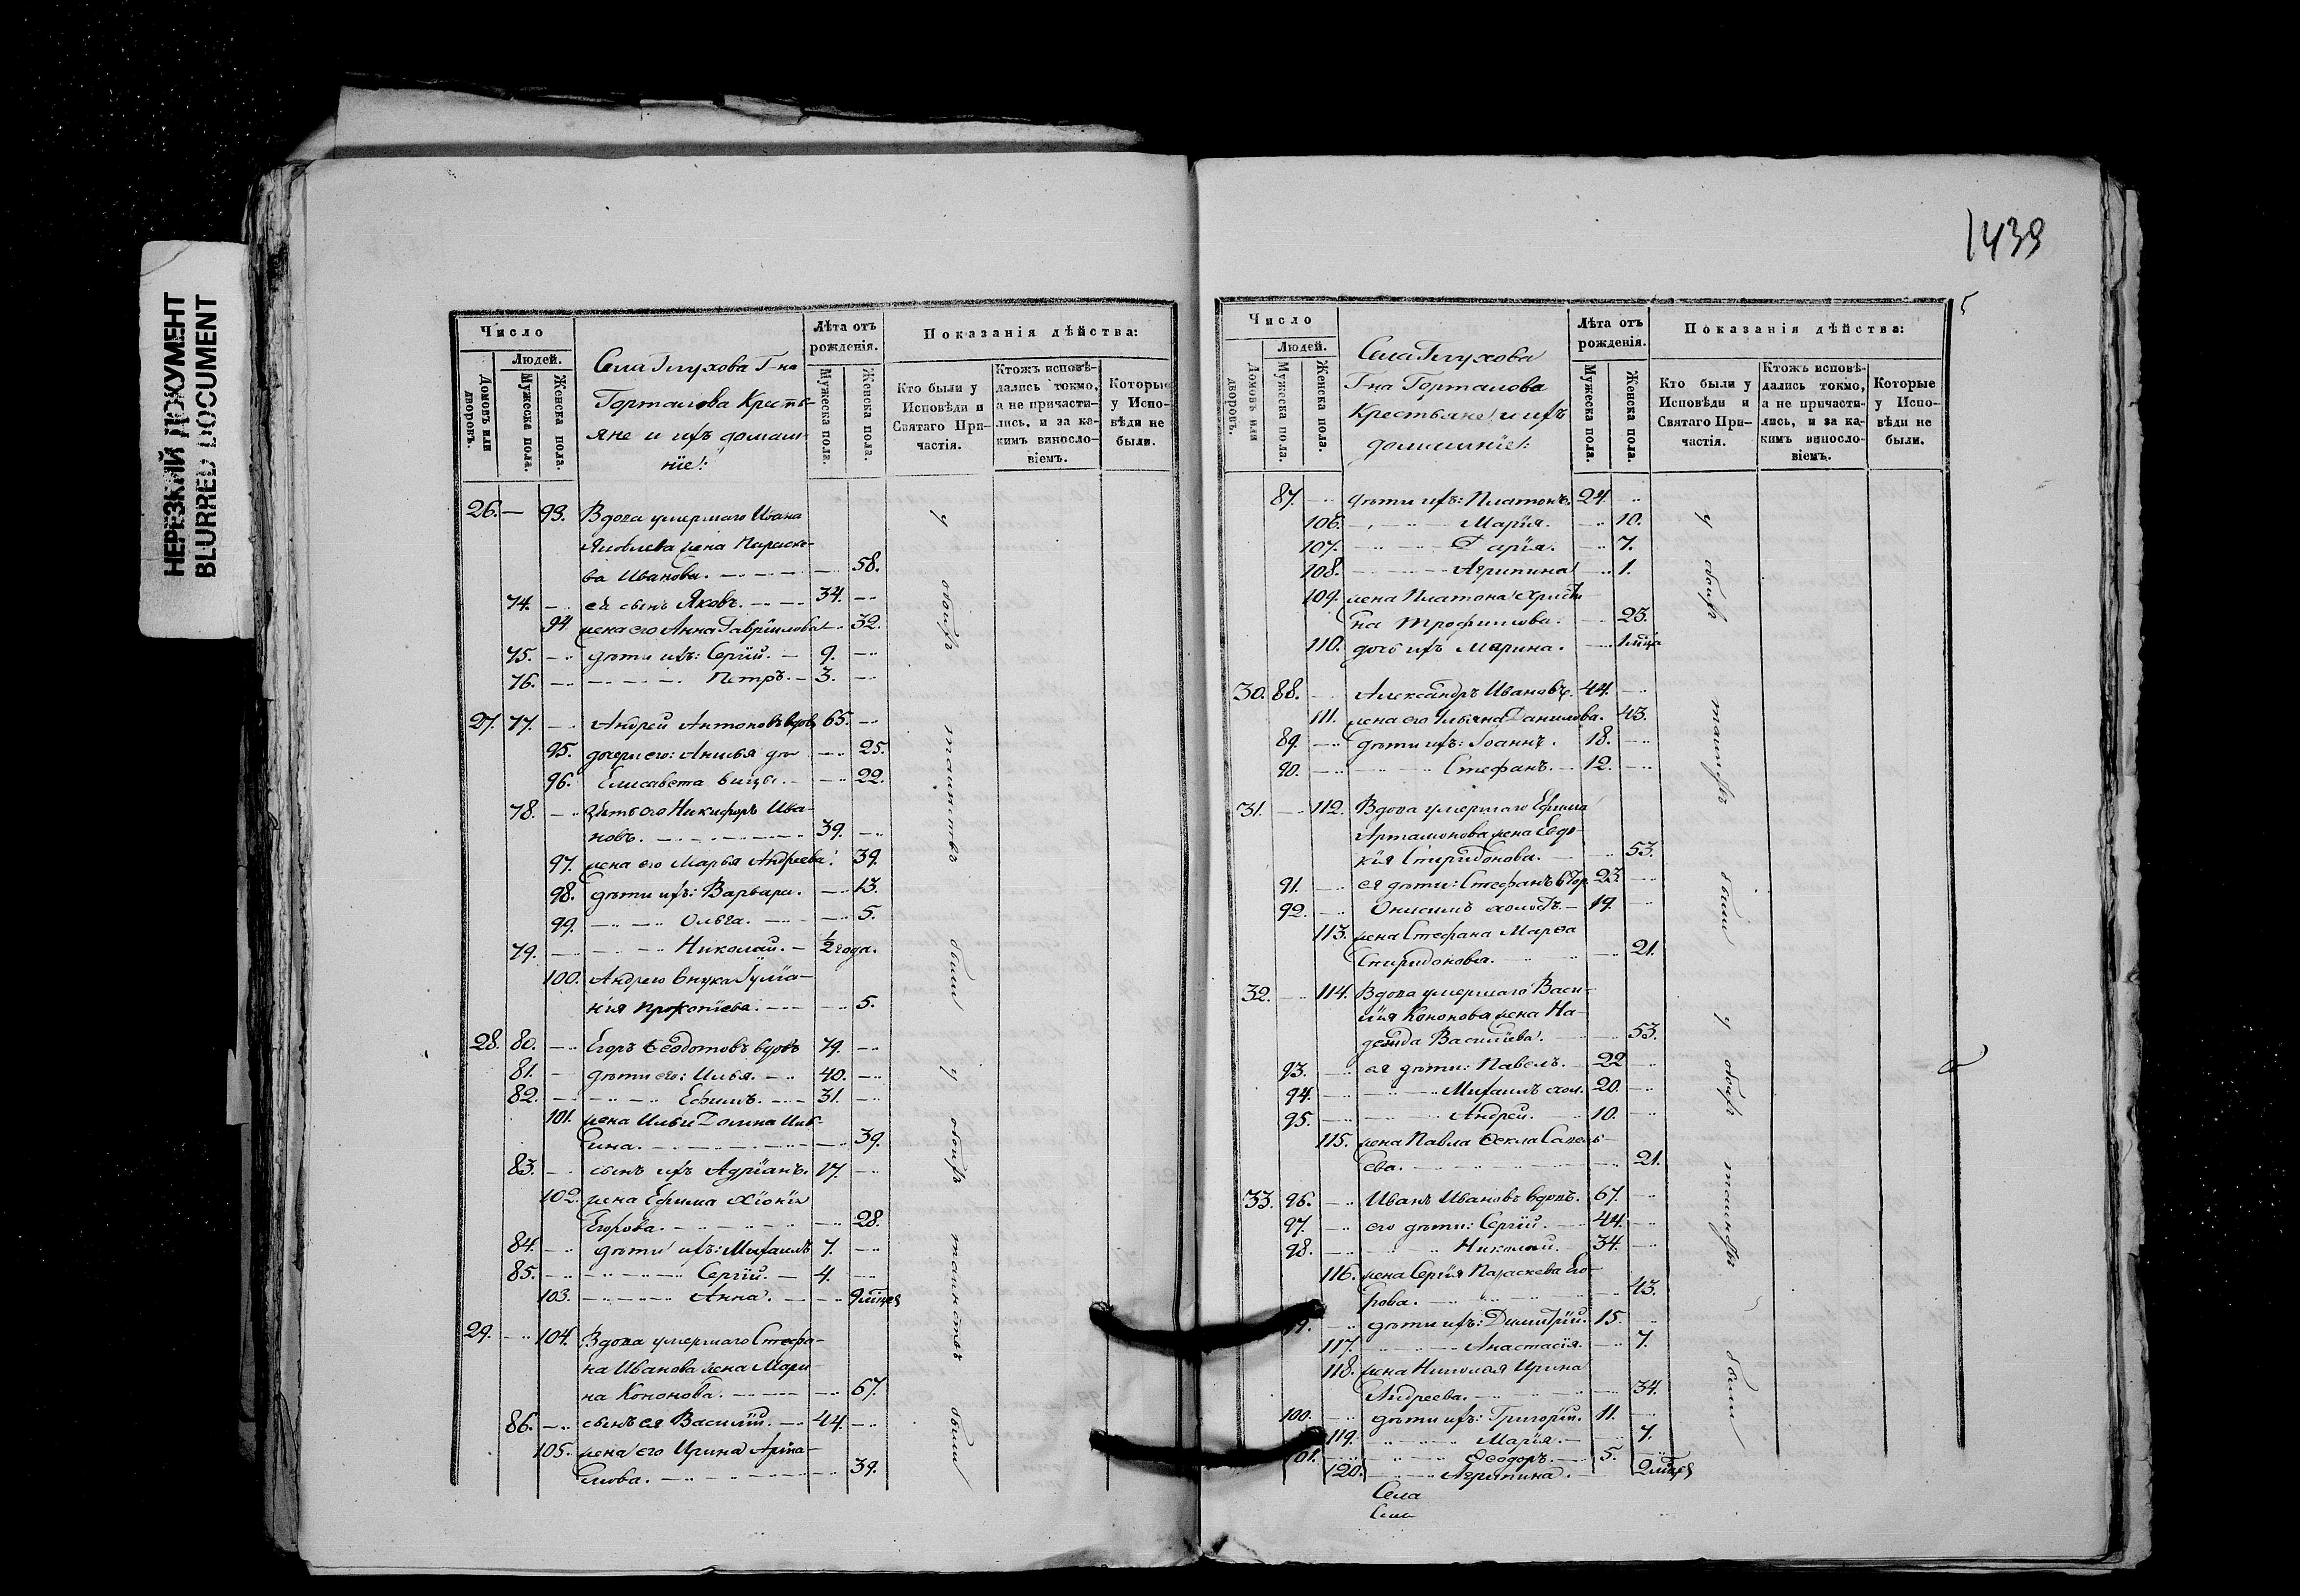 НЕРЕЗКИЙ ДОКУМЕНТ
BLURRED DOCUMENT
Число
Людей.
Домовъ или дворовъ.
Мужеска пола.
Женска пола.
Села Глухова Г-на
Горталова Кресть-
яне и ихъ домаш-
ніе:
Лѣта отъ
рожденія.
Мужеска пола.
Женска пола.
Показанія дѣйства:
Кто были у
Исповѣди и
Святаго При-
частія.
Ктожъ исповѣ-
дались токмо,
а не причасти-
лись, и за ка-
кимъ винословіемъ.
Которые
у Испо-
вѣди не
были.
26. — 93. Вдова умершаго Ивана
Яковлева жена Параске-
ва Иванова. 58.
74. ея сынъ Яковъ. 34.
94 жена его Анна Гаврилова 32.
75. дѣти ихъ: Сергій. 9.
76. Петръ. 3.
27. 77. Андрей Антоновъ вдовъ 65.
95. дочери его: Анисья дѣ 25.
96. Елисавета вицы. 22.
78. Зять его Никифоръ Ива-
новъ. 39.
97. жена его Марья Андреева. 39.
98. дѣти ихъ: Варвара. 13.
99. Ольга. 5.
79. Николай. 1/2 года.
100. Андрея внука Гулiа-
нія Прокопіева. 5.
28. 80. Егоръ Ѳеодотовъ вдовъ 79.
81. дѣти его: Илья. 40.
82. Ефимъ. 31.
101. жена Ильи Домна
39.
83. сынъ ихъ Адріанъ. 17.
102. жена Ефима Хіонія
Егорова. 28.
84. дѣти ихъ: Михаилъ 7.
85. Сергій. 4.
103. Анна. 9 мѣцев
29. 104. Вдова умершаго Стефа-
на Иванова жена Мари-
на Кононова. 67.
86. сынъ ея Василій. 44.
105. жена его Ирина
39.
у обоихъ таинствъ были
у обоихъ таинствъ были
1439
Число
Людей.
Домовъ или дворовъ.
Мужеска пола.
Женска пола.
Села Глухова
Г-на Горталова
Крестьяне и ихъ
домашніе:
Лѣта отъ
рожденія.
Мужеска пола.
Женска пола.
Показанія дѣйства:
Кто были у
Исповѣди и
Святаго При-
частія.
Ктожъ исповѣ-
дались токмо,
а не причасти-
лись, и за ка-
кимъ винословіемъ.
Которые
у Испо-
вѣди не
были.
87. дѣти ихъ: Платонъ. 24.
106. Марія. 10.
107. Дарія. 7.
108. Агрипина 1.
109. жена Платона Христи-
на Трофимова. 23.
110. дочь ихъ Марина. 1 мѣца
30. 88. Александръ Ивановъ. 44.
111. жена его Ульяна Данилова. 43.
89. дѣти ихъ: Іоаннъ. 18.
90. Стефанъ. 12.
31. 112. Вдова умершаго Ефима
Артамонова жена Евдо-
кія Спиридонова. 53.
91. ея дѣти: Стефанъ 23
92. Онисимъ холостъ. 19.
113. жена Стефана Марѳа
Спиридонова. 21.
32. 114. Вдова умершаго Васи-
лія Кононова жена На-
дежда Василіева. 53.
93. ея дѣти: Павелъ. 22
94. Михаилъ хол. 20.
95. Андрей. 10.
115. жена Павла Ѳекла Савель-
ева. 21.
33. 96. Иванъ Ивановъ вдовъ. 67.
97. его дѣти: Сергій. 44.
98. Николай. 34.
116. жена Сергія Параскева Его-
рова. 43.
дѣти ихъ: Димитрій. 15.
117. Анастасія. 7.
118. жена Николая Ирина
Андреева. 34.
100. дѣти ихъ: Григорій. 11.
119. Марія. 7.
101. Ѳеодоръ. 5.
120. Агрипина. 2 мѣцев
Села
Села
у обоихъ таинствъ были
у обоихъ таинствъ были